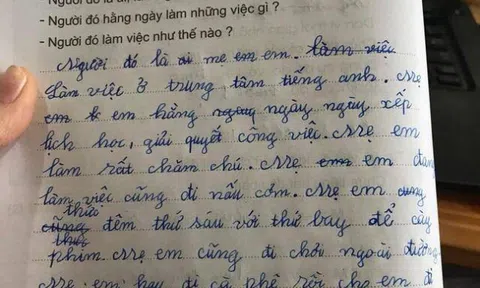 - Người đó
- Người đó hằng ngày làm những việc gì ?
- Người đó làm việc như thế nào ?
Người đó là ai mẹ em em. làm việc
Làm việc ở trung tâm tiếng anh. Mẹ
em hằng ngày ngày xếp
lịch học, giải quyết công việc. Mẹ em
làm rất chăm chú. Mẹ em em đang
làm việc cũng đi nấu cơm. Mẹ em cung
thức
cũng đêm thứ sáu với thứ bảy để cày
thức
phim. Mẹ em cũng đi chơi ngoài đường
Mẹ em hay đi cà phê rồi cho em đi